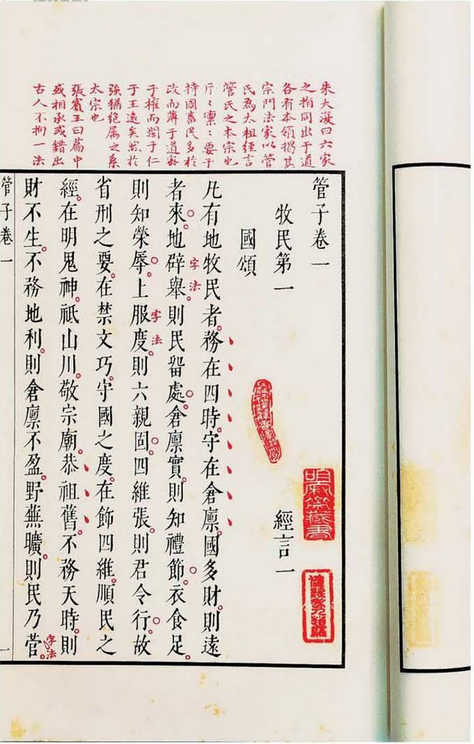 朱大復曰六家
之指同出于道
各有本領其
宗門法家以管
氏為太祖經言
管氏之本宗也
斤斤凜凜要于
持國畜民多於
政而薄于道
于權而闊于仁
于王遠矣然於
強猶絕屬之系
太宗也
張賓王曰篇中
或相承或錯出
古人不拘一法
管子卷一
牧民第一 經言一
國頌
凡有地牧民者務在四時守在倉廩國多財則遠
者來地辟舉則民留處倉廩實則知禮節衣食足
字法
則知榮辱上服度則六親固四維張則君令行故
字法
省刑之要在禁文巧守國之度在飾四維順民之
經在明鬼神祗山川敬宗廟恭祖舊不務天時則
財不生不務地利則倉廩不盈野蕪曠則民乃菅
字法
管子卷一 一